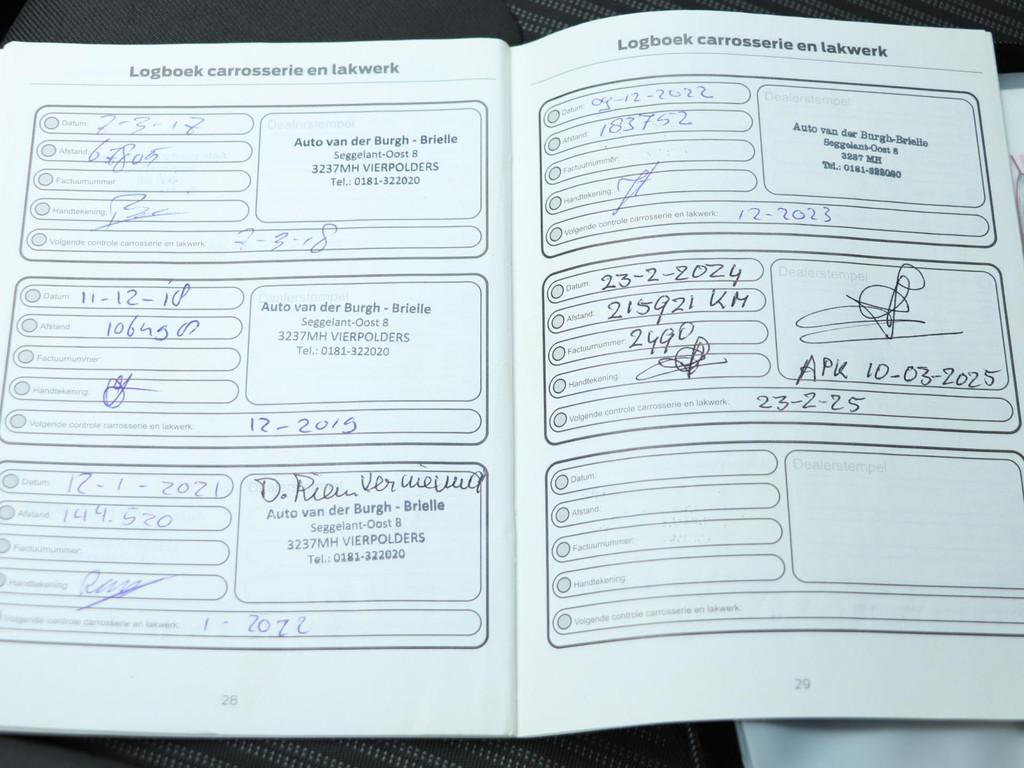 Logboek carrosserie en lakwerk
Datum: 7-3-17
Afstand: 67805
Factuurnummer
Handtekening:
Volgende controle carrosserie en lakwerk: 7-3-18
Dealerstempel
Auto van der Burgh - Brielle
Seggelant-Oost 8
3237MH VIERPOLDERS
Tel.: 0181-322020
Datum: 11-12-18
Afstand: 106490
Factuurnummer:
Handtekening:
Volgende controle carrosserie en lakwerk: 12-2019
Dealerstempel
Auto van der Burgh - Brielle
Seggelant-Oost 8
3237MH VIERPOLDERS
Tel.: 0181-322020
Datum: 12-1-2021
Afstand: 144.520
Factuurnummer:
Handtekening:
Volgende controle carrosserie en lakwerk: 1-2022
D. Riem
Auto van der Burgh - Brielle
Seggelant-Oost 8
3237MH VIERPOLDERS
Tel.: 0181-322020
28
Logboek carrosserie en lakwerk
Datum: 09-12-2022
Afstand: 183752
Factuurnummer:
Handtekening:
Volgende controle carrosserie en lakwerk: 12-2023
Dealerstempel
Auto van der Burgh-Brielle
Seggelant-Oost 8
3237 MH
Tel.: 0181-322020
Datum: 23-2-2024
Afstand: 215921 KM
Factuurnummer: 2490
Handtekening:
Volgende controle carrosserie en lakwerk: 23-2-25
Dealerstempel
APK 10-03-2025
Datum:
Afstand:
Factuurnummer:
Handtekening:
Volgende controle carrosserie en lakwerk:
Dealerstempel
29